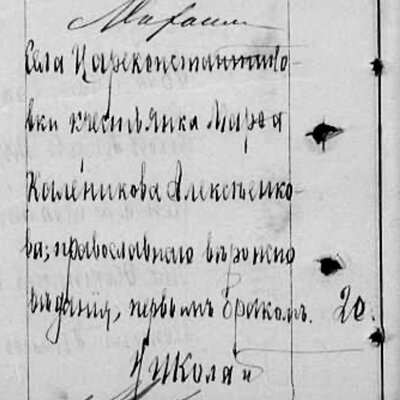 Села Цареконстантино-
вки крестьянка Марѳа
Каленикова Алексѣенко-
ва; православнаго вѣроиспо
вѣданія, первымъ бракомъ. 20.
Николай